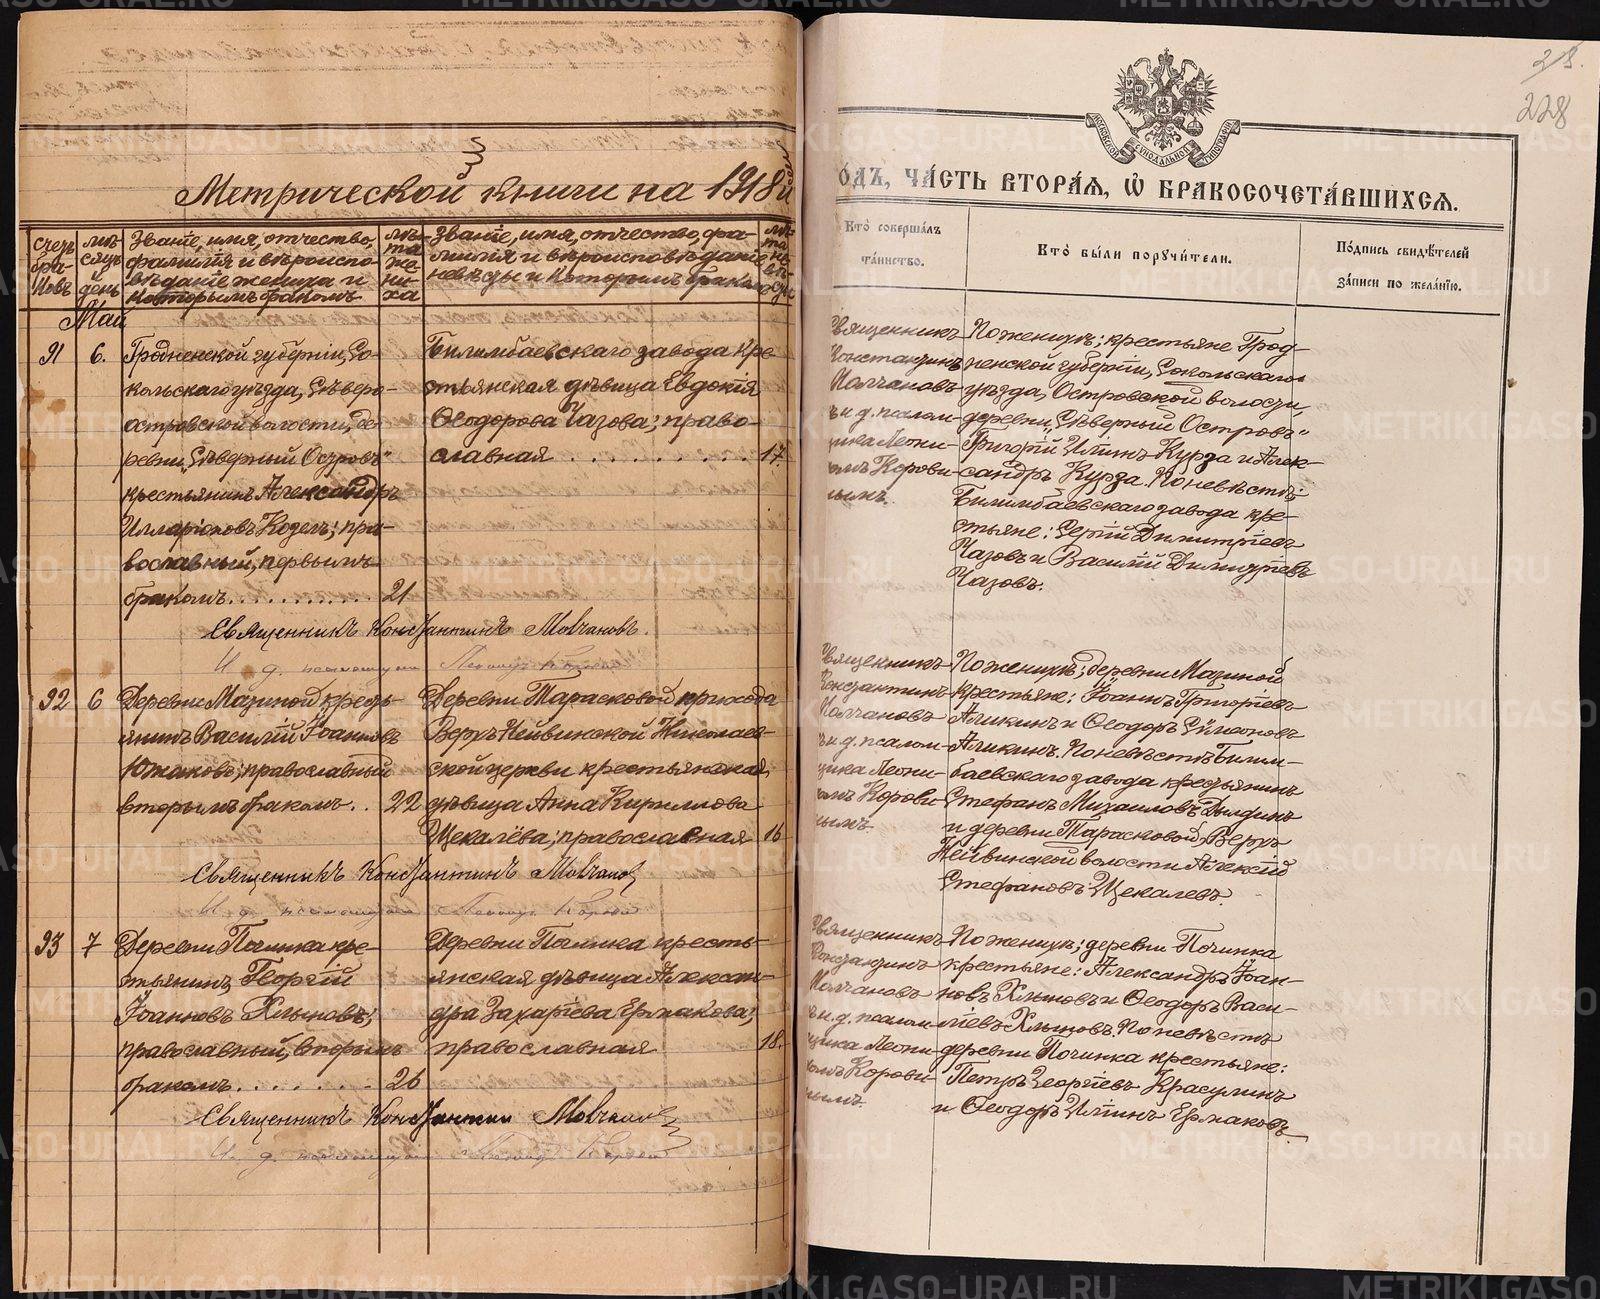 Метрической книги на 1918й
счетъ браковъ
мѣсяцъ день
Званіе, имя, отчество,
фамилія и вѣроиспо-
вѣданіе жениха и
которымъ бракомъ
лѣта жениха
Званіе, имя, отчество, фа-
милія и вѣроисповѣданіе
невѣсты и которымъ бракомъ
лѣта невѣсты
Май
91 6. Гродненской губерніи, Со-
кольскаго уѣзда, Сѣверо-
островской волости, де-
ревни „Сѣверный Островъ“
крестьянинъ Александръ
Илларіоновъ Козелъ; пра-
вославный, первымъ
бракомъ . . . . . . . . . . . 21
Билимбаевскаго завода кре-
стьянская дѣвица Евдокія
Ѳеодорова Чазова; право-
славная . . . . . . . . . . 17.
Священникъ Константинъ Молчановъ.
И. д. псаломщика Леонидъ Коровинъ
92 6 Деревни Мазиной кресть-
янинъ Василій Іоанновъ
Южаковъ; православный
вторымъ бракомъ . . 22
Деревни Тарасковой прихода
Верхъ Нейвинской Николаев-
ской церкви крестьянская
дѣвица Анна Кириллова
Щекалёва; православная 16
Священникъ Константинъ Молчановъ
И. д. псаломщика Леонидъ Коровинъ
93 7 Деревни Починка кре-
стьянинъ Георгій
Іоанновъ Хлыновъ;
православный, вторымъ
бракомъ . . . . . . . . 26
Деревни Починка кресть-
янская дѣвица Алексан-
дра Захаріева Ермакова;
православная 18.
Священникъ Константинъ Молчановъ
И. д. псаломщика Леонидъ Коровинъ
228
МОСКОВСКОЙ СѴНОДАЛЬНОЙ ТИПОГРАФІИ
ОДЪ, ЧА́СТЬ ВТОРА́Я, Ѽ БРАКОСОЧЕТА́ВШИХСЯ.
Кто̀ соверша́лъ
та́инство.
Кто̀ бы́ли поручи́тели.
По́дпись свидѣ́телей
за́писи по жела́нію.
Священникъ
Константинъ
Молчановъ
и и. д. псалом-
щика Леони-
домъ Корови-
нымъ.
По женихѣ; крестьяне Грод-
ненской губерніи, Сокольскаго
уѣзда, Островской волости,
деревни „Сѣверный Островъ“
Григорій Илiинъ Курза и Алек-
сандръ Курза. По невѣстѣ:
Билимбаевскаго завода кре-
стьяне: Сергій Димитріевъ
Чазовъ и Василій Димитріевъ
Чазовъ.
Священникъ
Константинъ
Молчановъ
и и. д. псалом-
щика Леони-
домъ Корови-
нымъ.
По женихѣ; деревни Мазиной
крестьяне: Іоаннъ Григоріевъ
Аликинъ и Ѳеодоръ Симеоновъ
Аликинъ. По невѣстѣ Билим-
баевскаго завода крестьянинъ
Стефанъ Михаиловъ Дылдинъ
и деревни Тарасковой, Верхъ
Нейвинской волости Алексій
Стефановъ Щекалевъ.
Священникъ
Константинъ
Молчановъ
и и. д. псалом-
щика Леони-
домъ Корови-
нымъ.
По женихѣ; деревни Починка
крестьяне: Александръ Іоан-
новъ Хлыновъ и Ѳеодоръ Васи-
ліевъ Хлыновъ. По невѣстѣ
деревни Починка крестьяне:
Петръ Георгіевъ Красулинъ
и Ѳеодоръ Илiинъ Ермаковъ.
METRIKI.GASO-URAL.RU